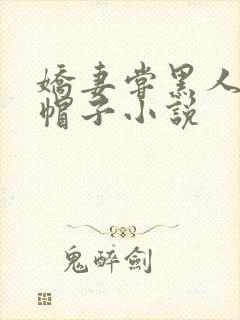 嬌妻嘗黑人
帽子小說
鬼醉劍